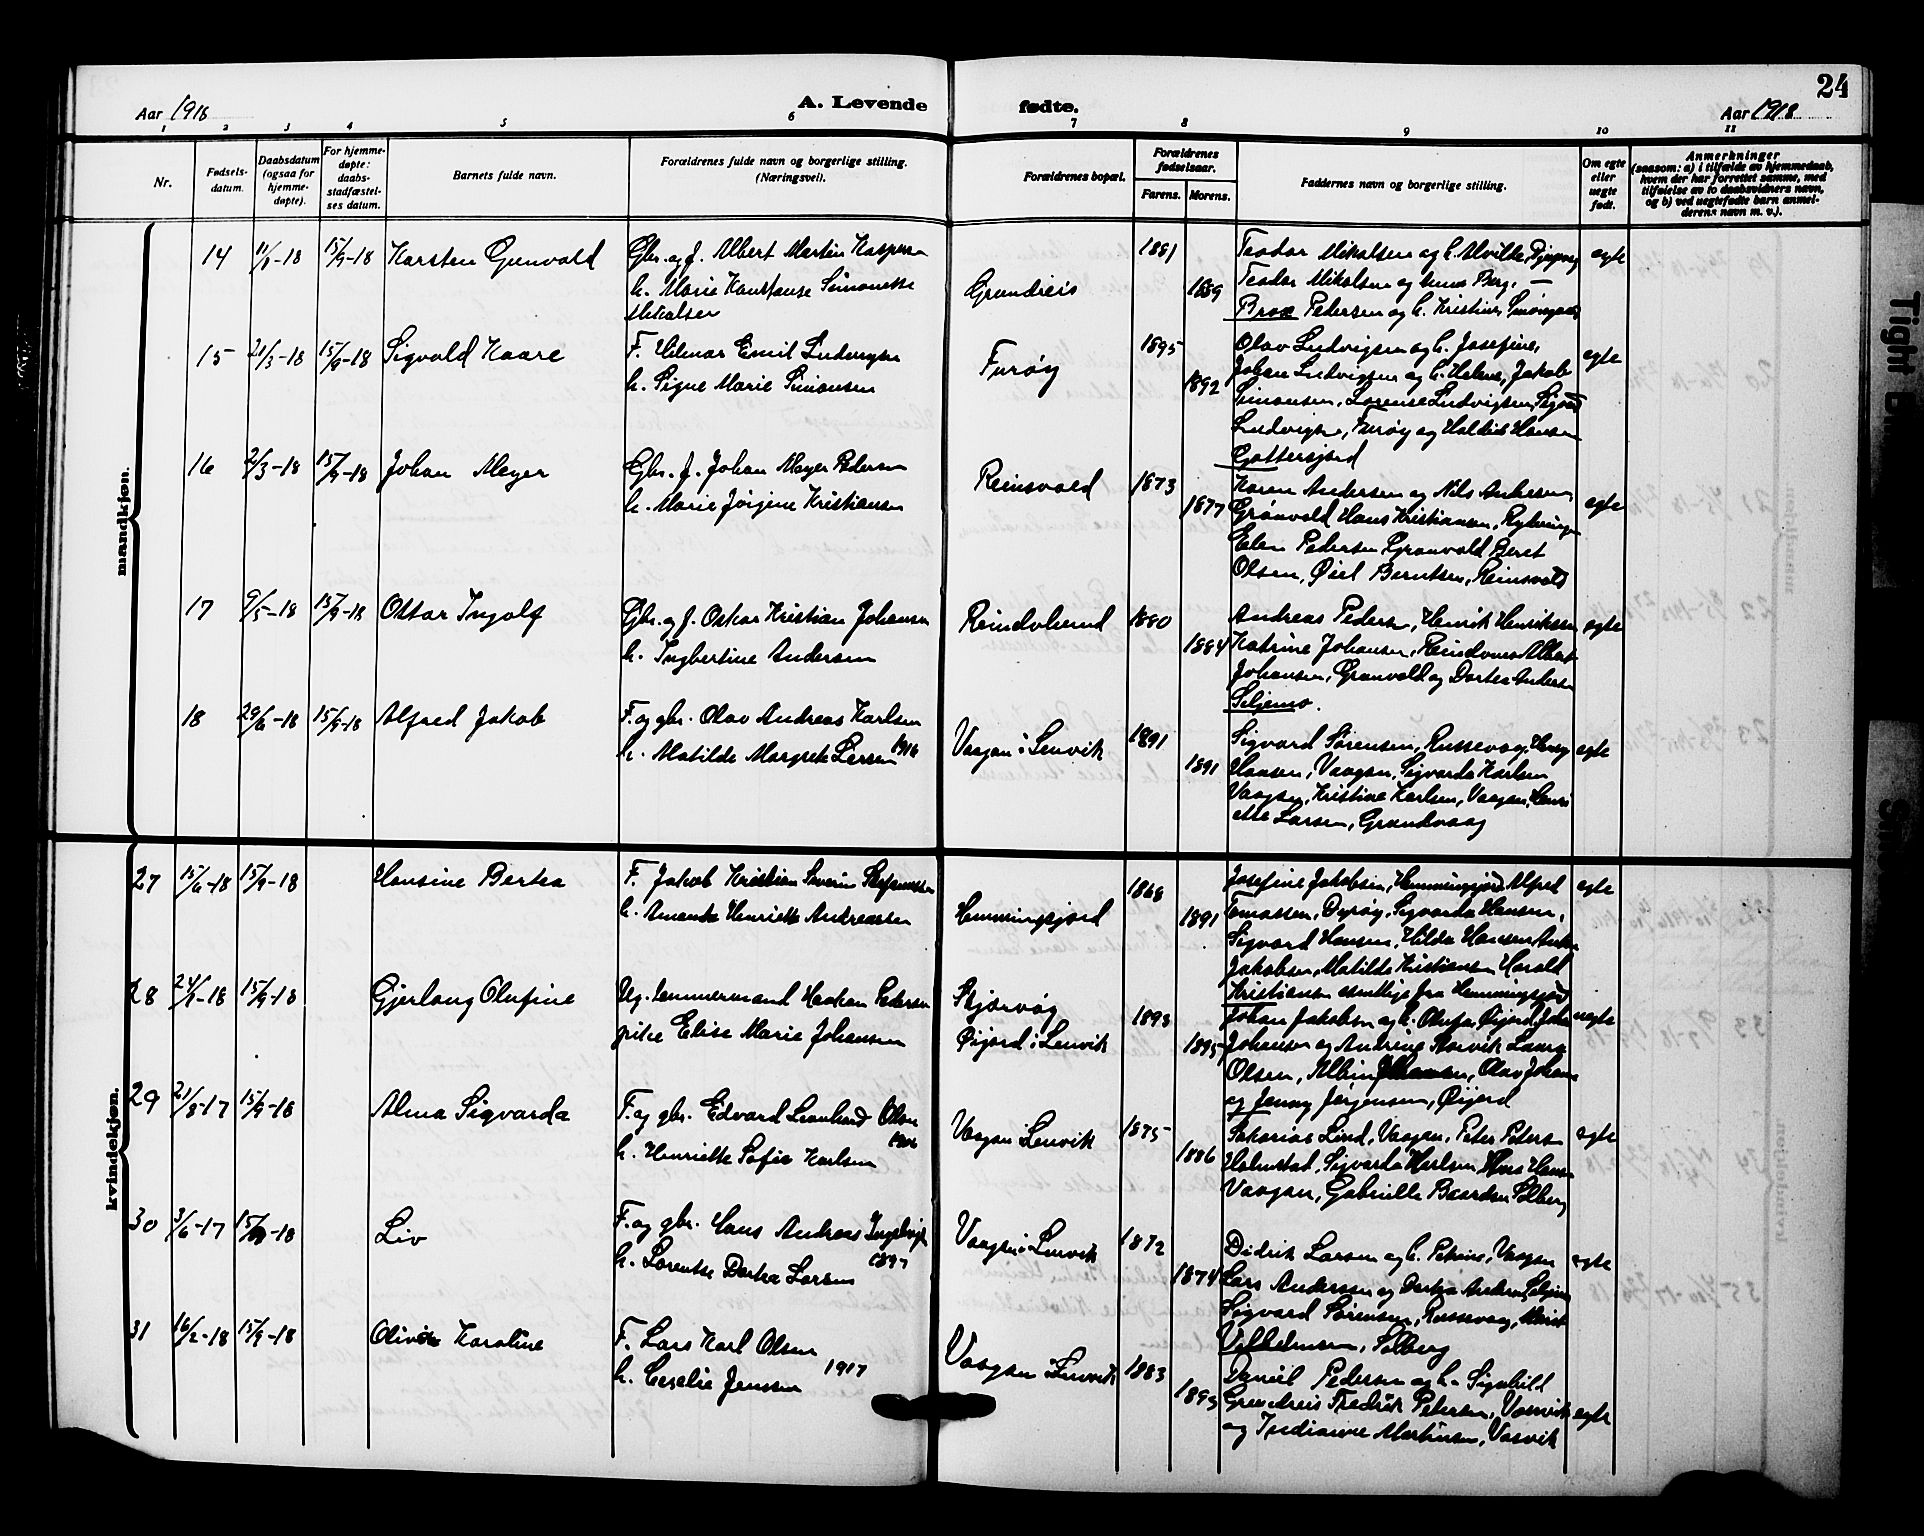 24
Aar 1918
A. Levende
fødte.
Aar 1918
1 2 3 4 5 6 7 8 9 10 11
Nr.
Fødsels-
datum.
Daabsdatum
(ogsaa for
hjemme-
døpte).
For hjemme-
døpte:
daabs-
stadfæstel-
ses datum.
Barnets fulde navn.
Forældrenes fulde navn og borgerlige stilling.
(Næringsvei).
Forældrenes bopæl.
Forældrenes
fødselsaar.
Farens. Morens.
Faddernes navn og borgerlige stilling.
Om egte
eller
uegte
født.
Anmerkninger
(saasom: a) i tilfælde av hjemmedaab,
hvem der har forrettet samme, med
tilføielse av to daabsvidners navn,
og b) ved uegtefødte barn anmel-
derens navn m. v.).
mandkjøn.
14 15/9-18 Karsten Gunvald
Gbr. og f. Albert Martin Kaspersen
h. Marie Konstanse Simonette
Mikalsen
Grundreis
1881
1889
Teodor Mikalsen og h. Alvilde,
Teodor Mikalsen og Berg,
Pedersen og h. Kristine
egte
15 21/3-18 15/9-18 Sigvald Kaare
F. Hilmar Emil Ludvigsen
h. Signe Marie Simonsen
Furøy
1895
1892
Olav Ludvigsen og h. Josefine,
Johan Ludvigsen og h. Helene, Jakob
Simonsen, Lorense Ludvigsen, Sigvard
Ludvigsen, Furøy og Haldis Hansen
Gottersjord
egte
16 2/3-18 15/9-18 Johan Meyer
Gbr. f. Johan Meyer Pedersen
h. Marie Jørgine Kristiansen
Reinsvold
1873
1877
Karen Andersen og Nils Andersen,
Grønvold Hans Kristiansen,
Elen Pedersen Grønvold Beret
Olsen, Berntsen, Reinsvold
egte
17 9/5-18 15/9-18 Ottar Ingolf
Gbr. og f. Oskar Kristian Johansen
h. Ingbertine Andersen
Reindolund
1880
1884
Andreas Pedersen, Henrik Henriksen
Katrine Johansen, Albert
Johansen, Grønvold og Dortea Andersen
Seljemo.
egte
18 29/6-18 15/9-18 Alfred Jakob
F. og gbr. Olav Andreas Karlsen
h. Matilde Margrete Larsen 1916
Vaagan i Lenvik
1891
1891
Sigvard Sørensen, Russevaag,
Hansen, Vaagan, Sigvarda Karlsen
Vaagan, Kristine Karlsen, Vaagan, Henri
ette Larsen, Grundvaag
egte
kvindekjøn.
27 15/6-18 15/9-18 Hansine Bertea
F. Jakob Kristian Severin Stefanussen
h. Amanda Henriette Andreassen
Hemmingsjord
1868
1891
Josefine Jakobsen, Hemmingsjord Alfred
Tomassen, Dyrøy, Sigvarda Hansen,
Sigvard Hansen, Hilda Hansen
Jakobsen, Matilde Kristiansen Harald
Kristiansen samtlige fra Hemmingsjord
egte
28 15/9-18 Gjerlaug Olufine
Ug. tømmermand Haakon Pedersen
pike Elise Marie Johansen
Skjervøy
Øijord i Lenvik
1893
1895
Johan Jakobsen og h. Olufa, Øijord,
Johansen og Andrine Laura
Olsen, Albin Johansen, Olav Johans
og Jenny Jørgensen, Øijord
uegte
29 21/8-17 15/9-18 Alma Sigvarda
F. og gbr. Edvard Leonhard Olsen
h. Henriette Sofie Karlsen
Vaagan i Lenvik
1875
1886
Sakarias Lind, Vaagan, Peter Peters
Holmstad, Sigvarda Karlsen, Hansen
Vaagan, Gabrielle Baardsen Solberg
egte
30 3/6-17 15/9-18 Liv
F. og gbr. Hans Andreas Ingebrigts
h. Lorentse Dortea Larsen 1897
Vaagan i Lenvik
1872
1874
Didrik Larsen og h. Petrine, Vaagan
Lars Anderssen og Dortea Andersen Seljemo
Sigvard Sørensen, Russevaag, Marit
Vilhelmsen, Solberg
egte
31 16/2-18 15/9-18 Olivie Karoline
F. Lars Karl Olsen
h. Cecelie Jensen 1917
Vaagan i Lenvik
1883
1893
Daniel Pedersen og h. Signhild
Grundreis Fredrik Petersen, Vaarvik
og Indianne Martinsen, Vaarvik
egte